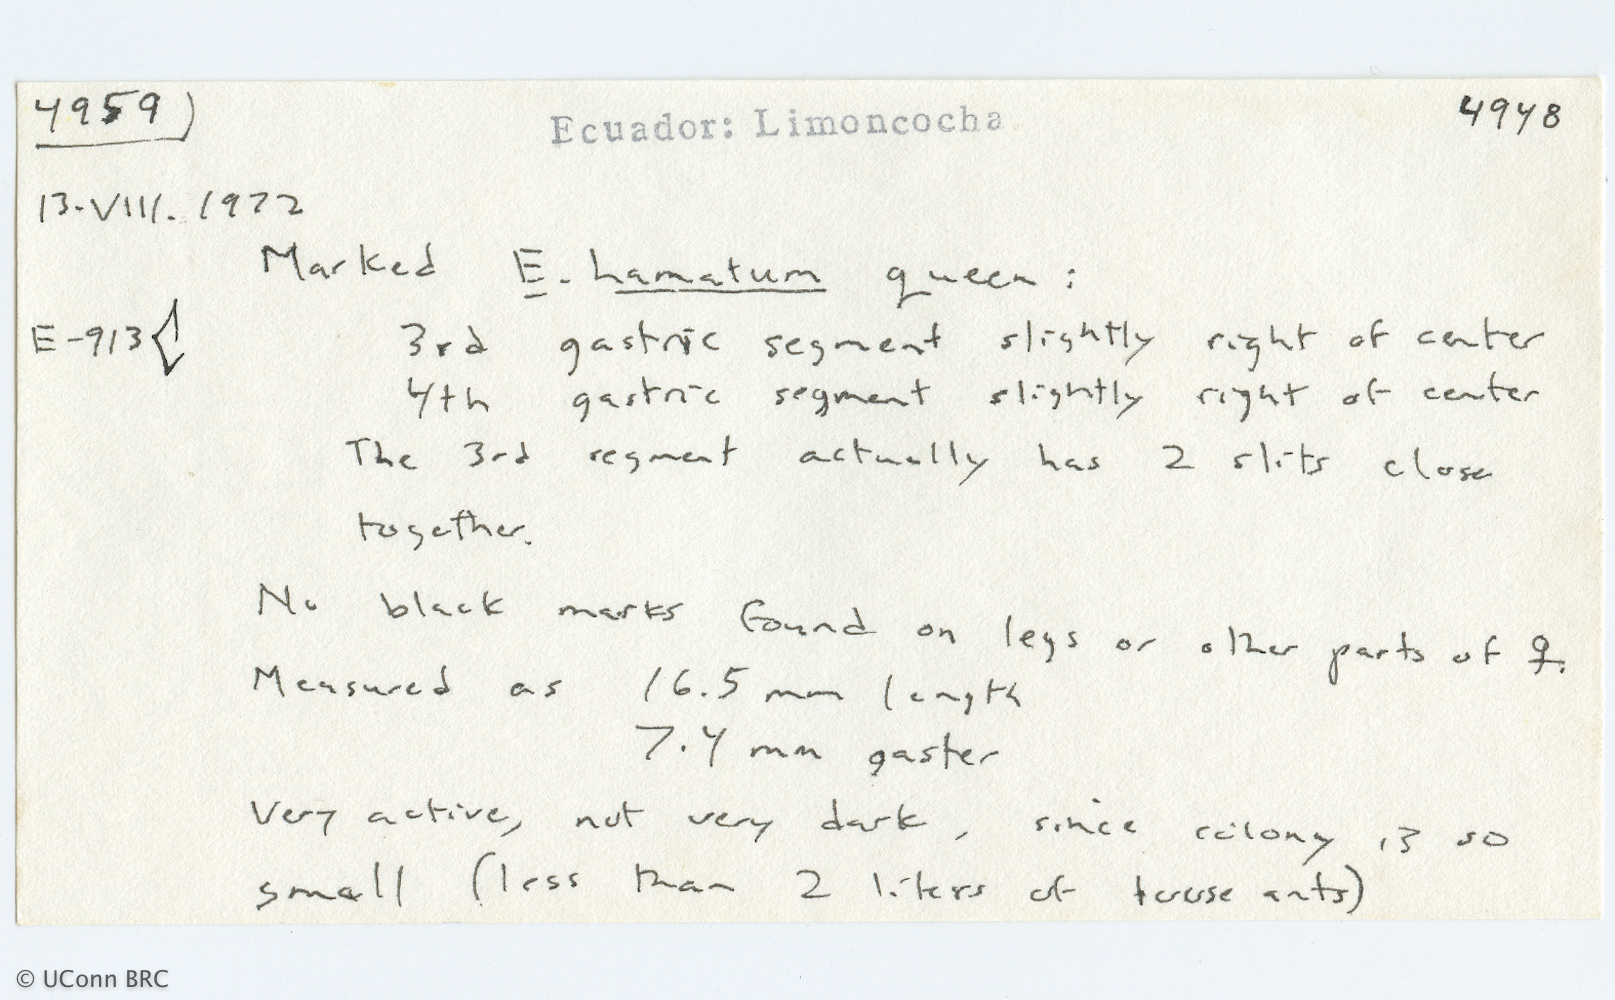 4959)
Ecuador: Limoncocha
4948
13.VIII.1972
Marked E. hamatum queen:
E-913{
3rd gastric segment slightly right of center
4th gastric segment slightly right of center
The 3rd segment actually has 2 slits close
together.
No black marks found on legs or other parts of ♀.
Measured as 16.5 mm length
7.4 mm gaster
Very active, not very dark, since colony is so
small (less than 2 liters of loose ants)
© UConn BRC